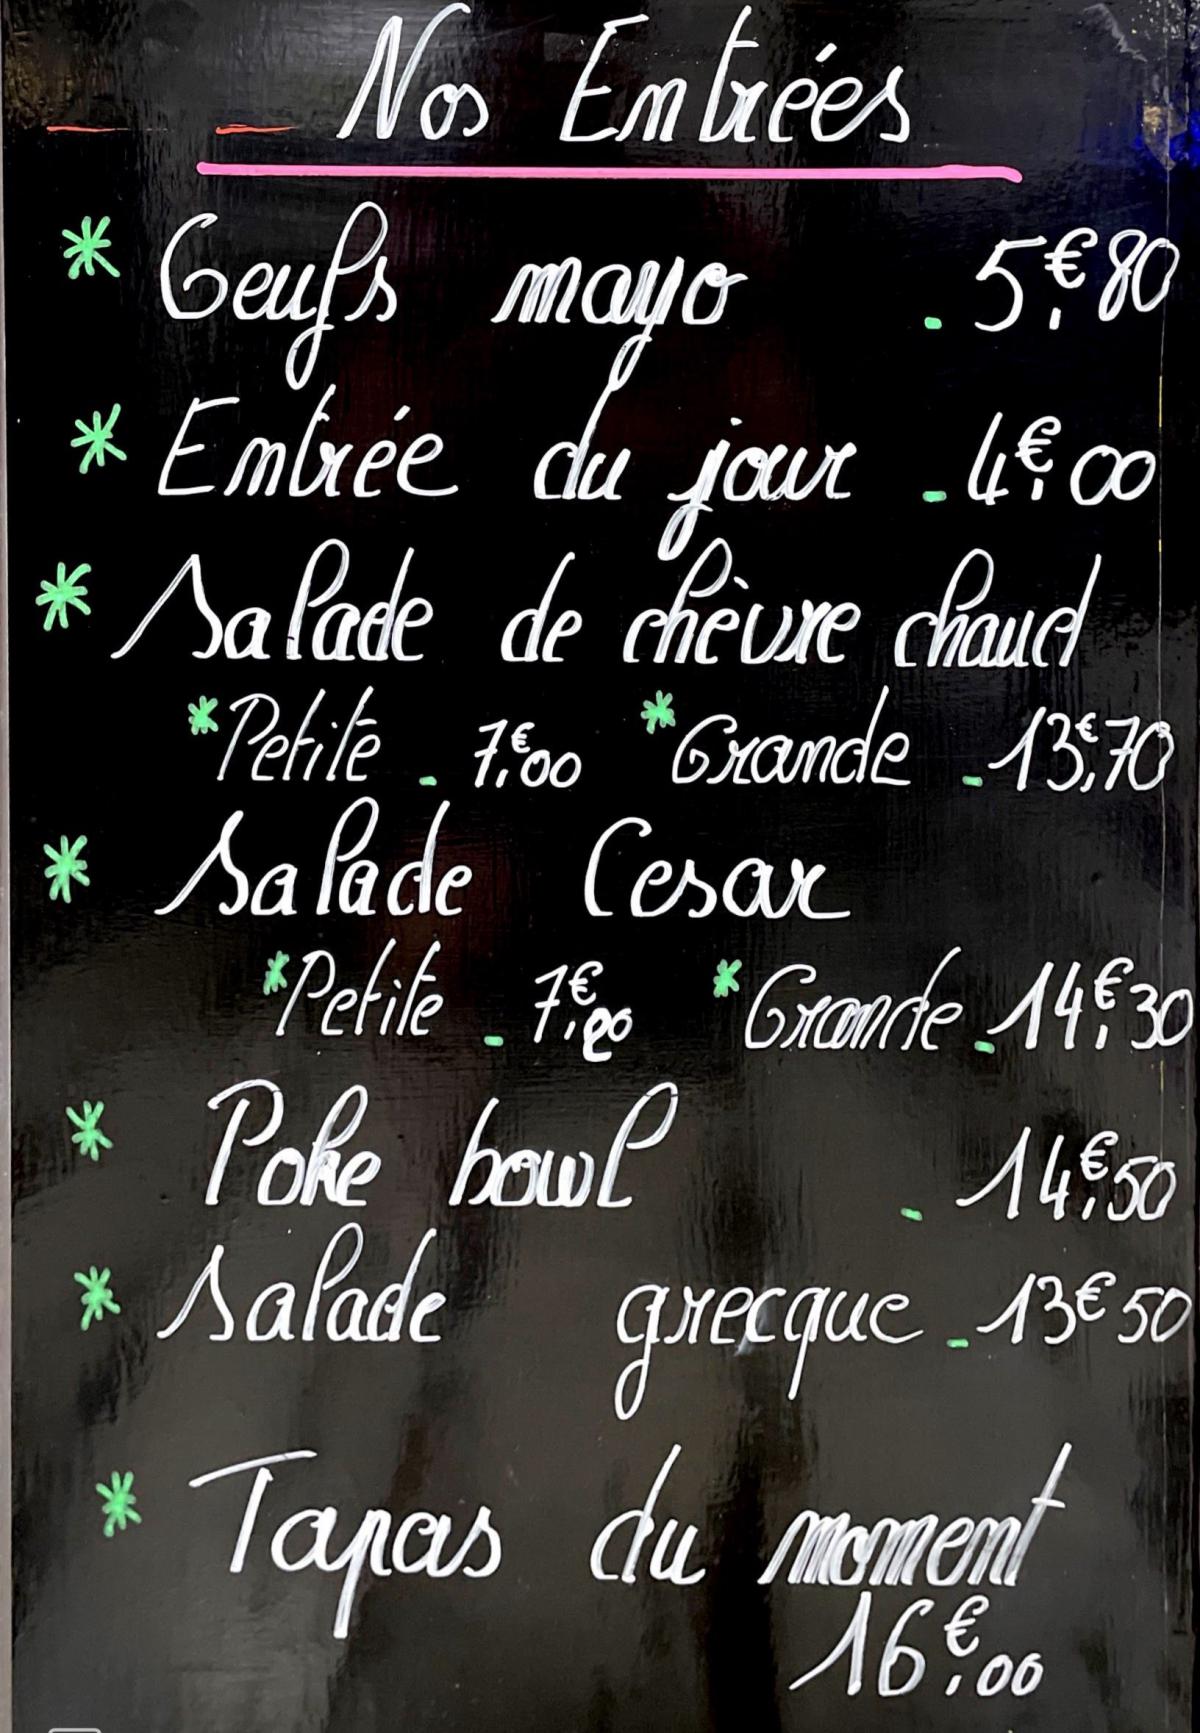 Nos Entrées
* Oeufs mayo - 5,€80
* Entrée du jour - 4,€00
* Salade de chèvre chaud
* Petite - 7,€00 * Grande - 13,€70
* Salade Cesar
* Petite - 7,€20 * Grande - 14,€30
* Poke bowl - 14,€50
* Salade grecque - 13€50
* Tapas du moment
16,€00